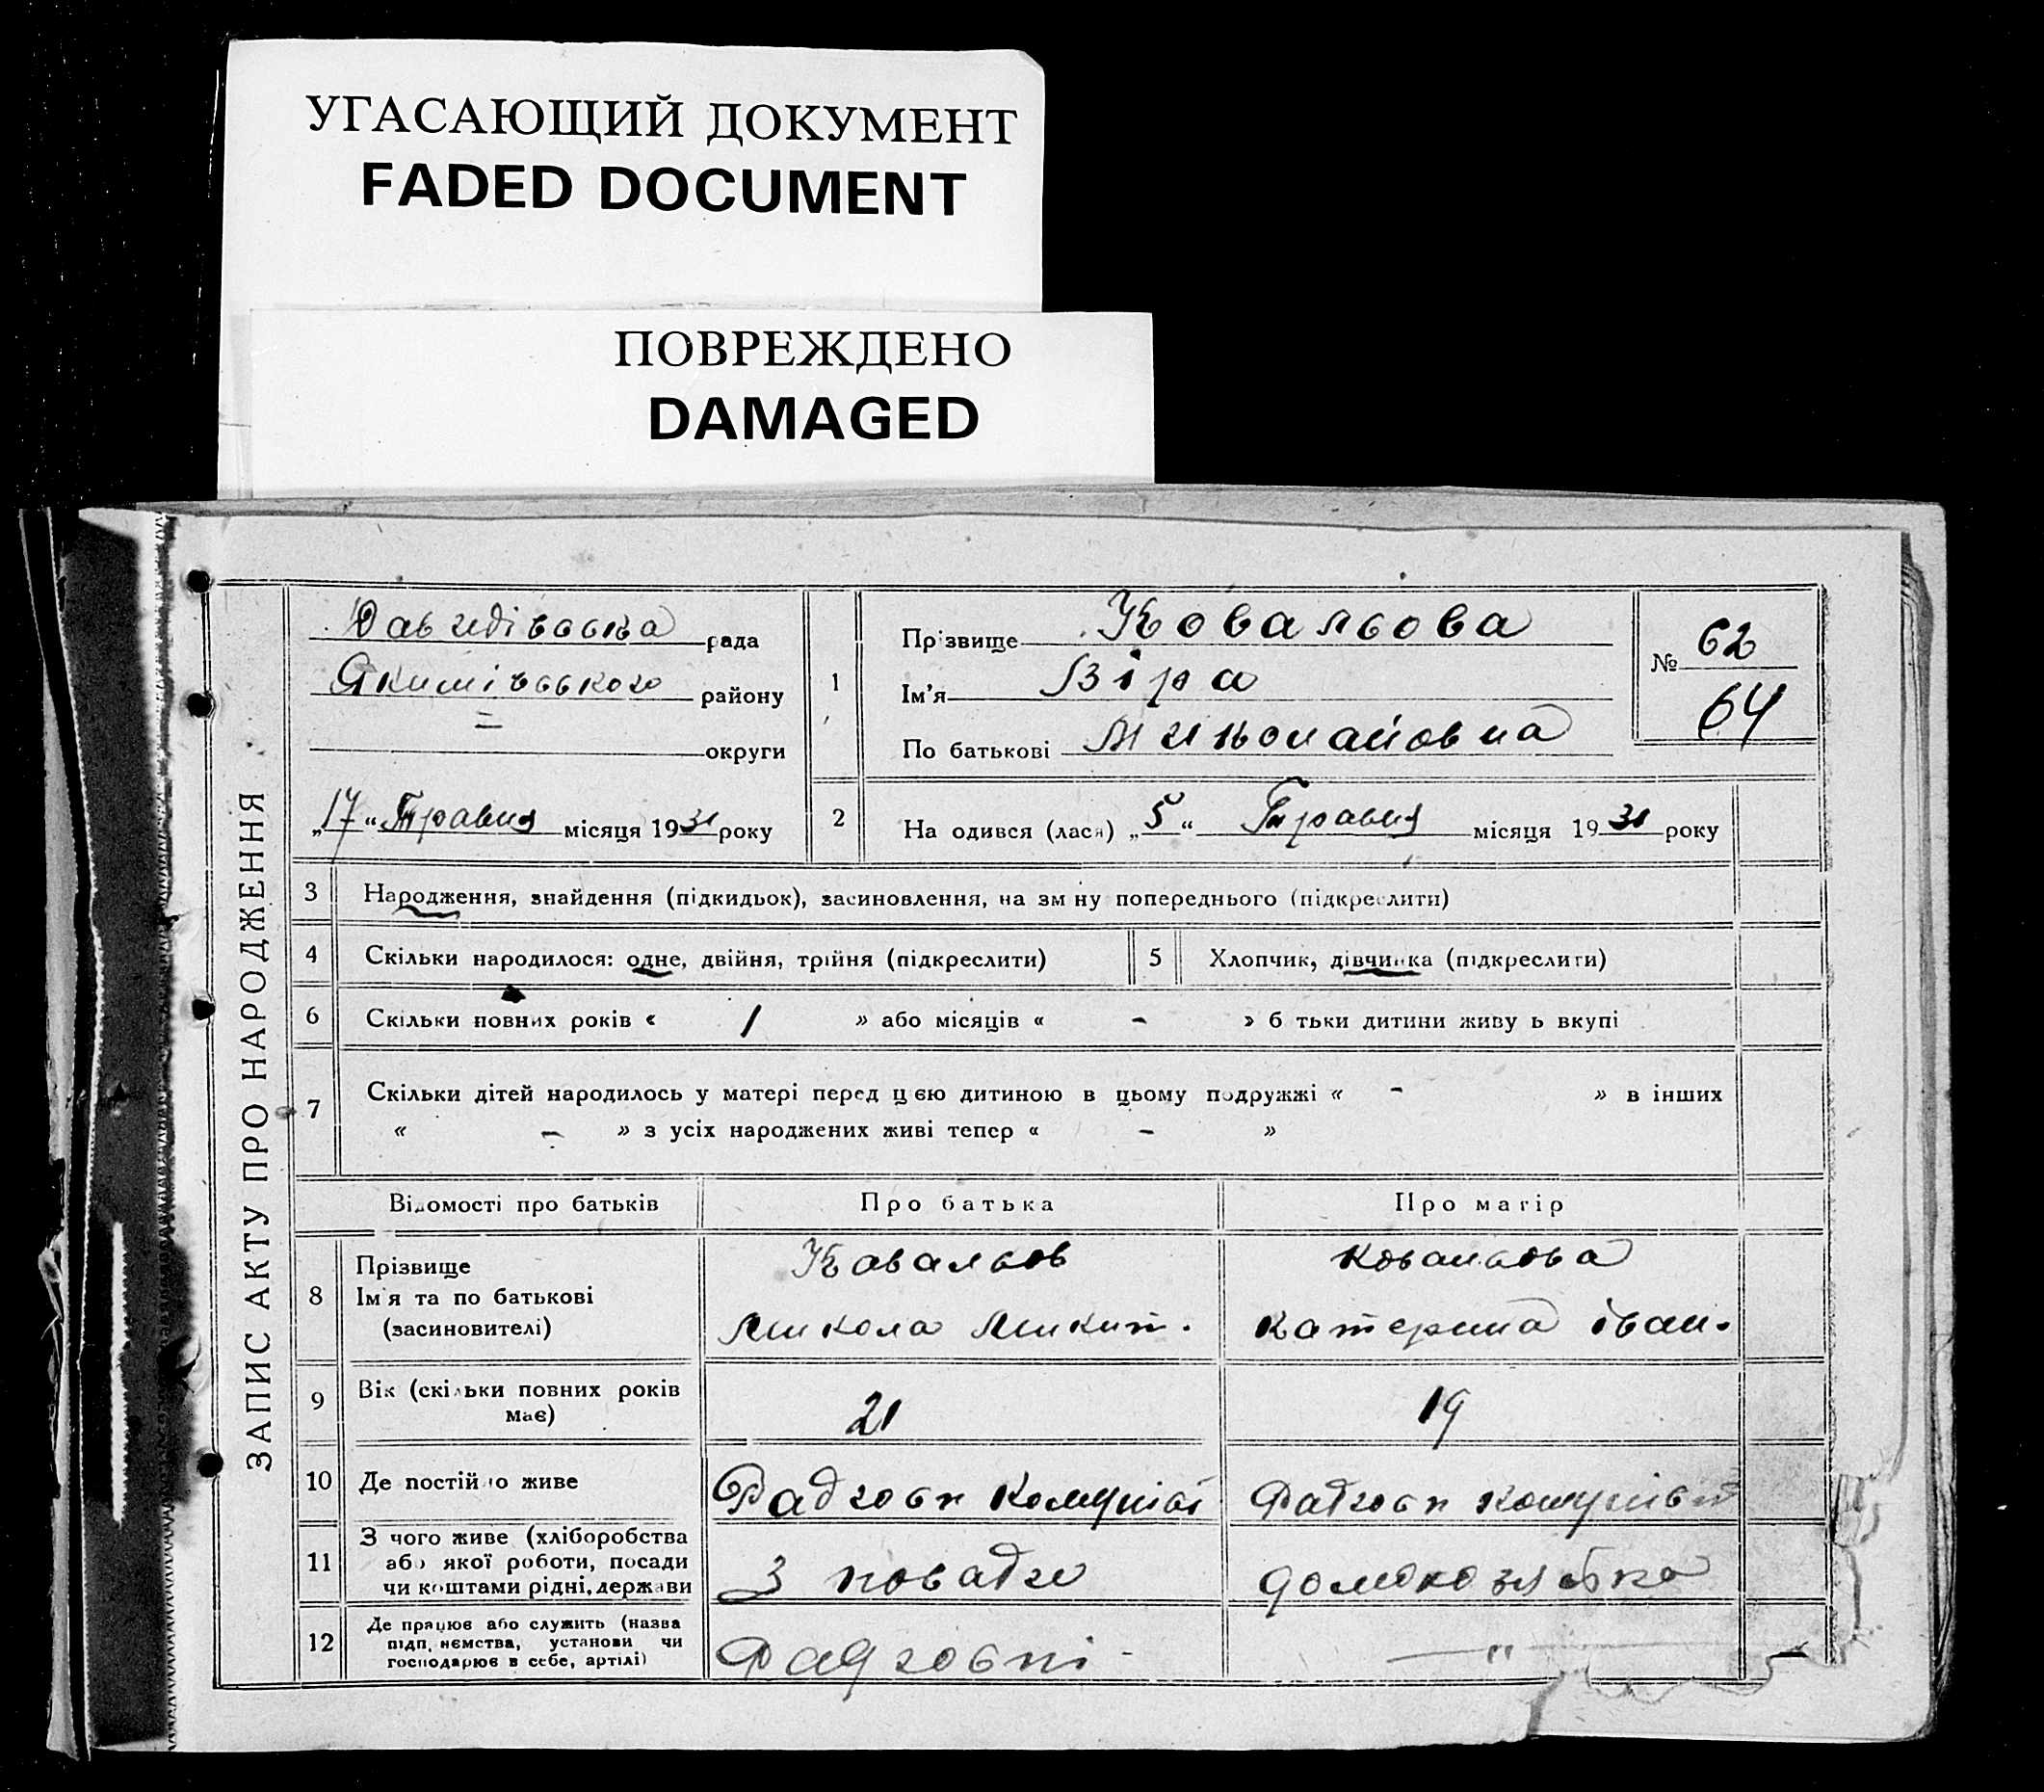 УГАСАЮЩИЙ ДОКУМЕНТ
FADED DOCUMENT
ПОВРЕЖДЕНО
DAMAGED
ЗАПИС АКТУ ПРО НАРОДЖЕННЯ
Давидівська рада
Якимівського району
= округи
„17“ Травня місяця 1931 року
1
Прізвище Ковальова
Ім'я Віра
По батькові Миколайовна
№ 62
64
2 На одився (лася) „5“ Травня місяця 1931 року
3 Народження, знайдення (підкидьок), засиновлення, на зм ну попереднього (підкреслити)
4 Скільки народилося: одне, двійня, трійня (підкреслити) 5 Хлопчик, дівчинка (підкреслити)
6 Скільки повних років « 1 » або місяців « - » б тьки дитини живу ь вкупі
7 Скільки дітей народилось у матері перед цією дитиною в цьому подружжі « - » в інших
« - » з усіх народжених живі тепер « - »
Відомості про батьків Про батька Про матір
8 Прізвище Ковальов Ковальова
Ім'я та по батькові
(засиновителі) Микола Микит. Катерина Іван.
9 Вік (скільки повних років
має) 21 19
10 Де постійно живе Радгосп Комуніст Радгосп Комуніст
11 З чого живе (хліборобства
або якої роботи, посади
чи коштами рідні, держави З посади домохозяйка
12 Де працює або служить (назва
підп.иємства, установи чи
господарює в себе, артілі) Радгоспі - — " —